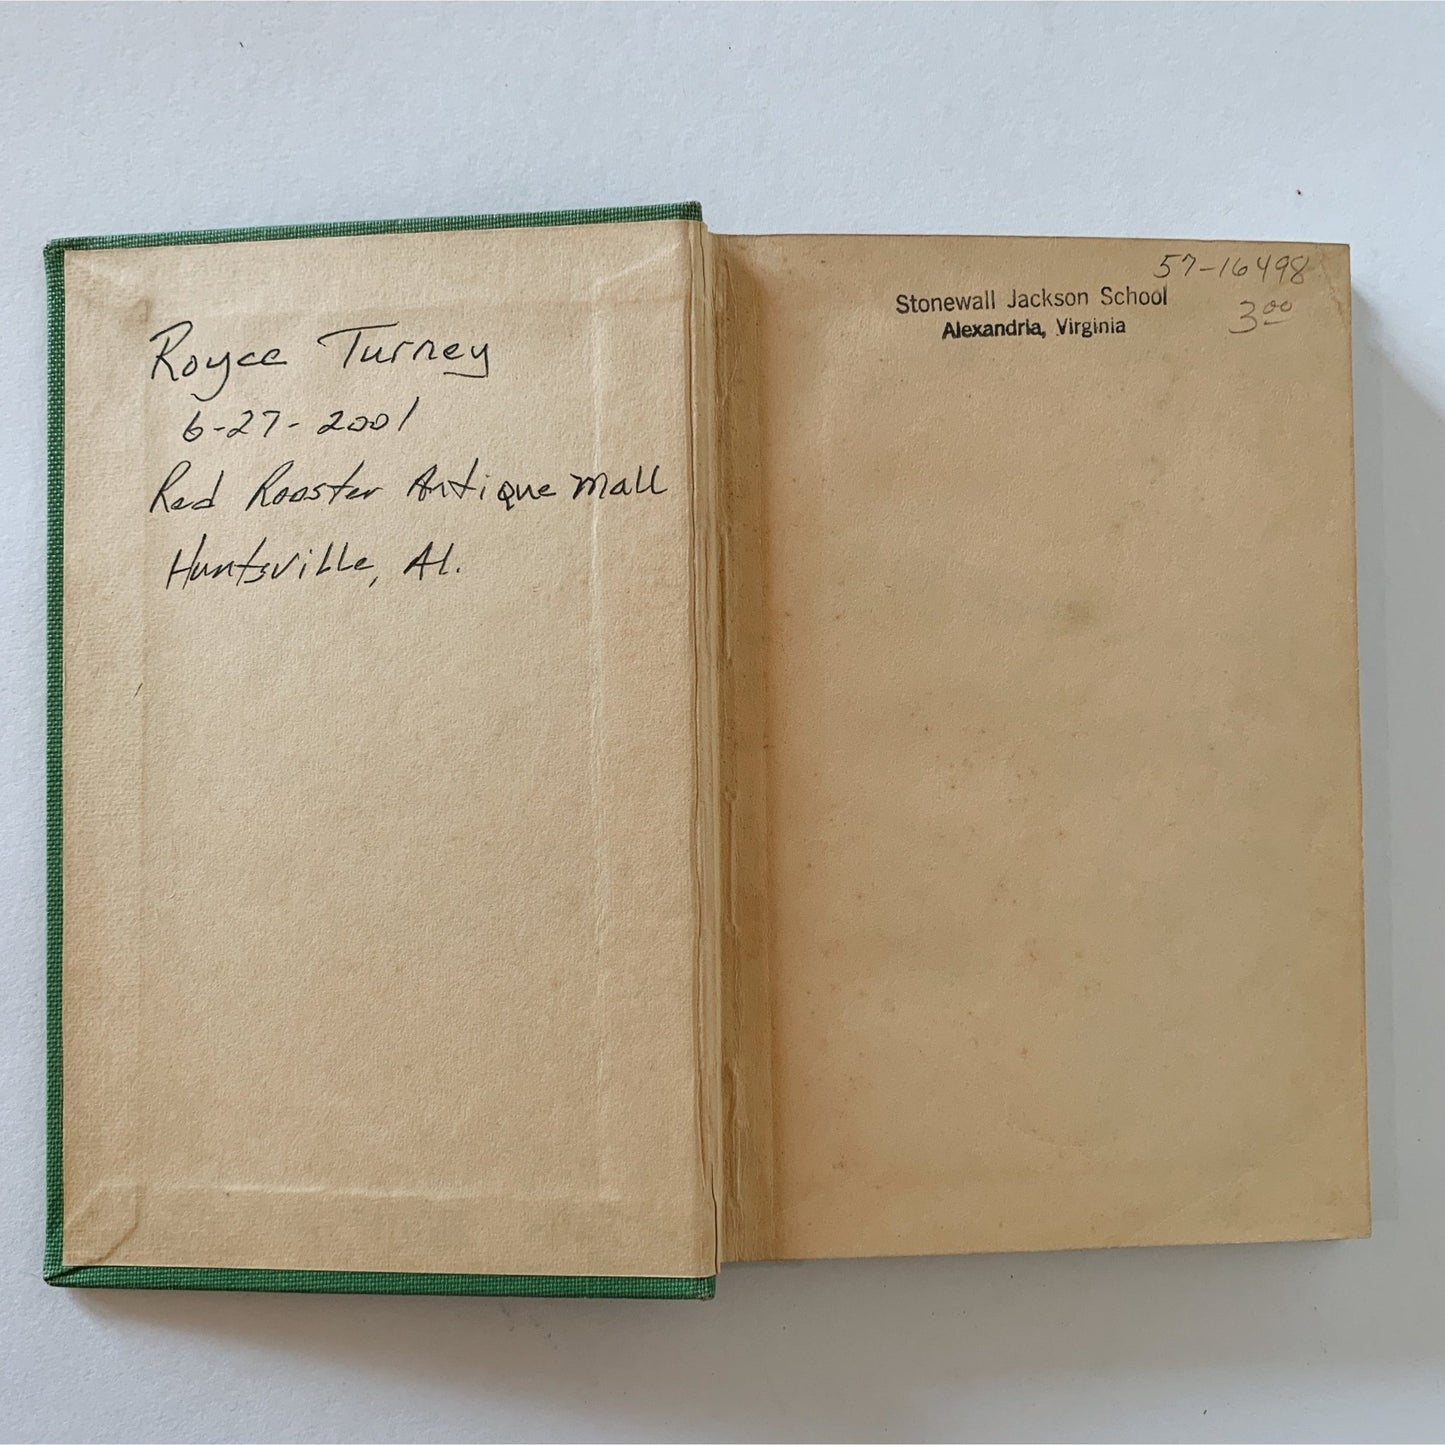 Royce Turney
6-27-2001
Red Rooster Antique Mall
Huntsville, Al.
57-16498
Stonewall Jackson School
3.00
Alexandria, Virginia